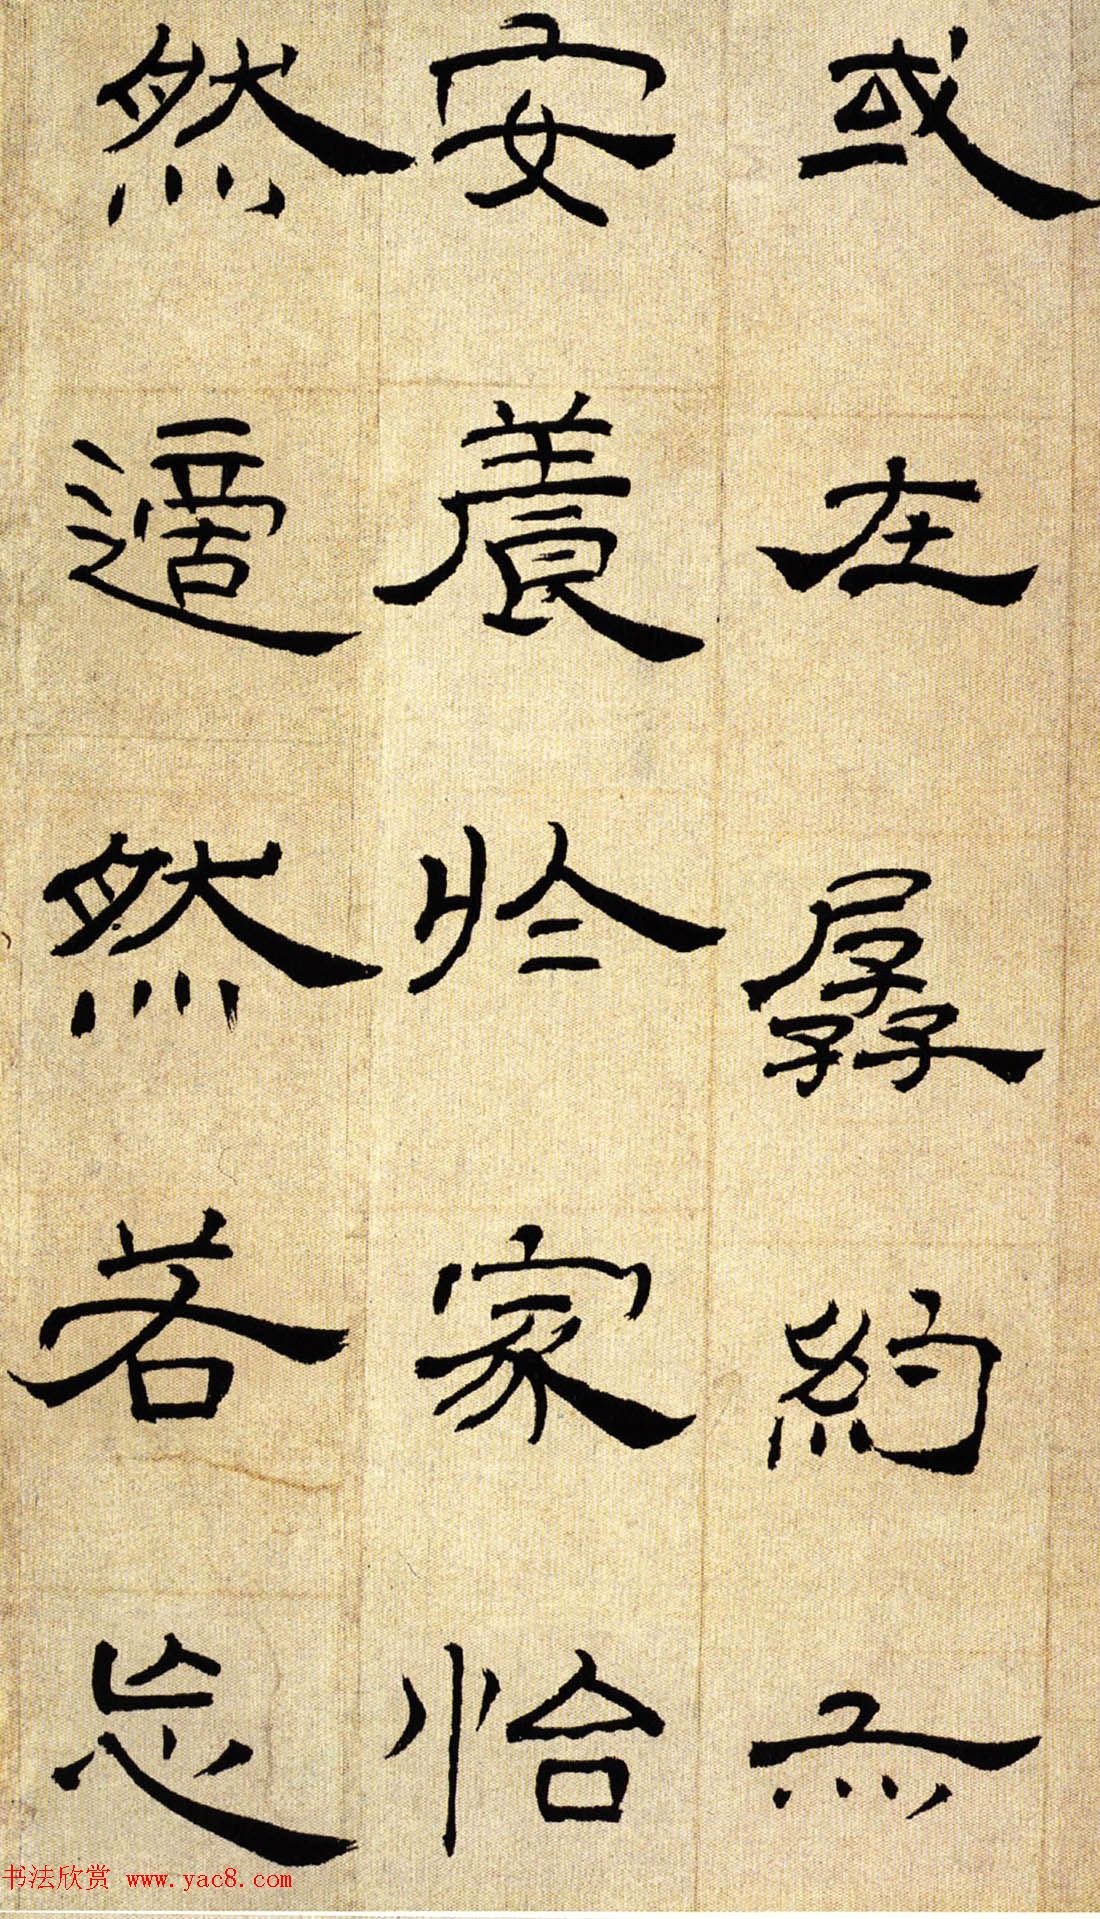 或在孱約亦
安養於家怡
然適然若忘
书法欣赏 www.yac8.com